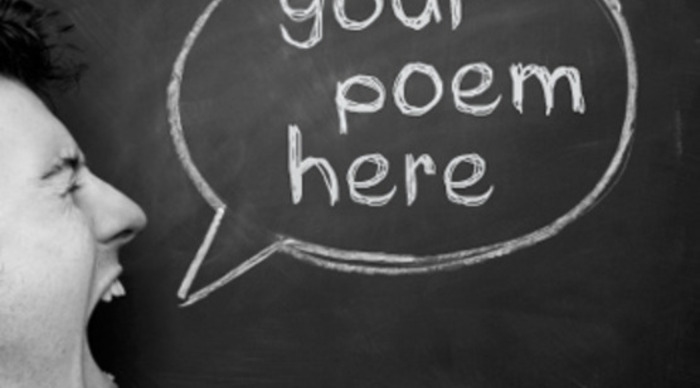 your
poem
here